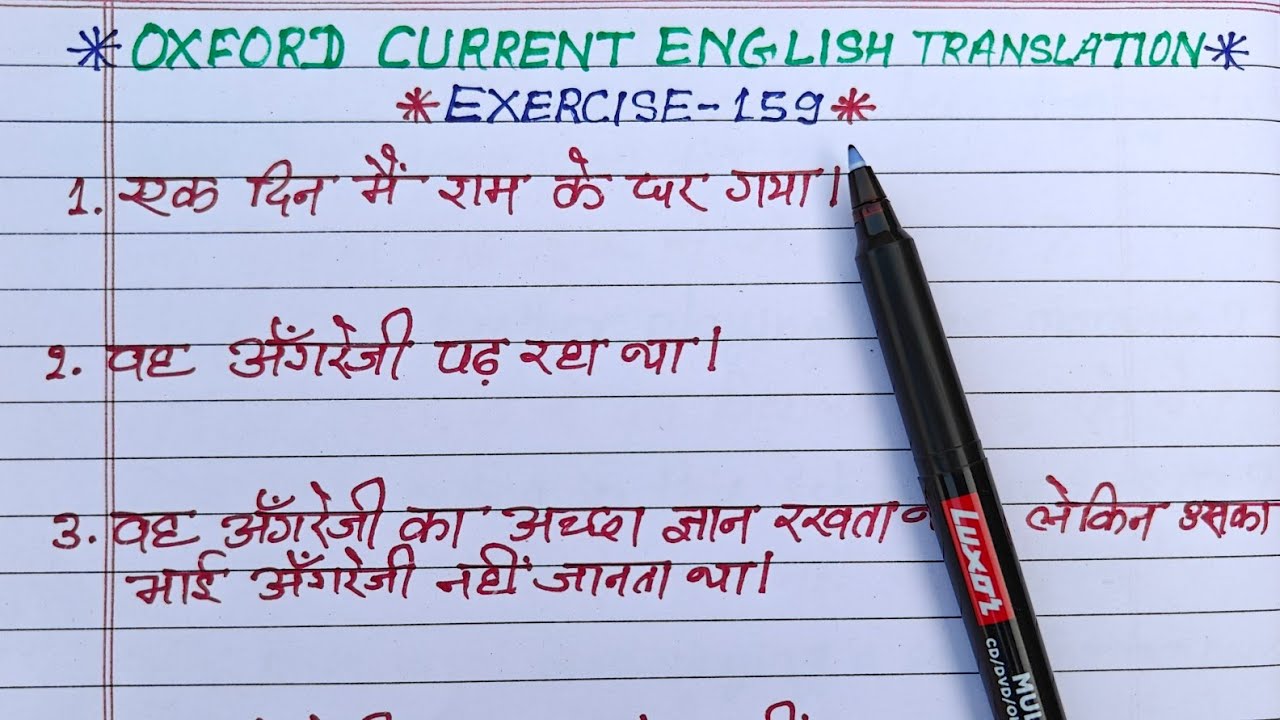 *OXFORD CURRENT ENGLISH TRANSLATION*
*EXERCISE-159*
1. एक दिन मैं राम के घर गया।
2. वह अँगरेजी पढ़ रहा था।
3. वह अँगरेजी का अच्छा ज्ञान रखता लेकिन उसका
भाई अँगरेजी नहीं जानता था।
LUXOR
CD/DVD/O
MUL